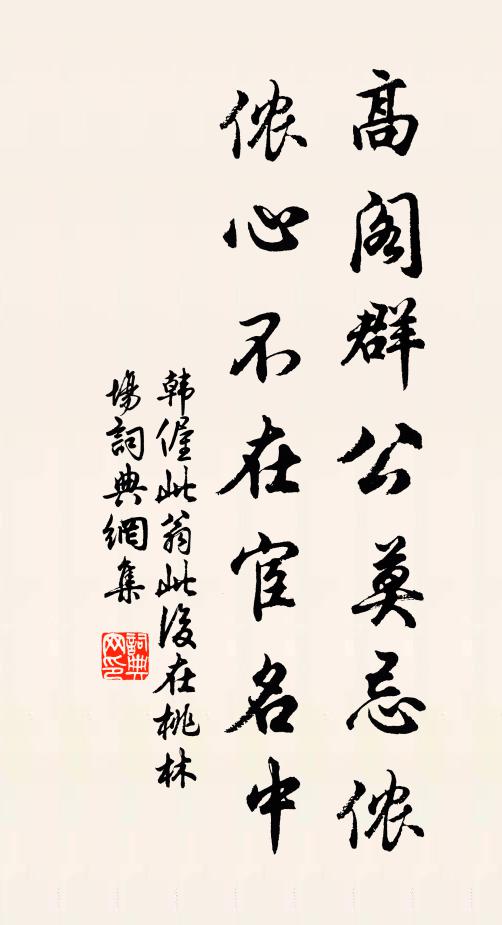 高阁群公莫忌侬
侬心不在宦名中
韩偓此翁此後在桃林
場詞典網集
詞典
网印